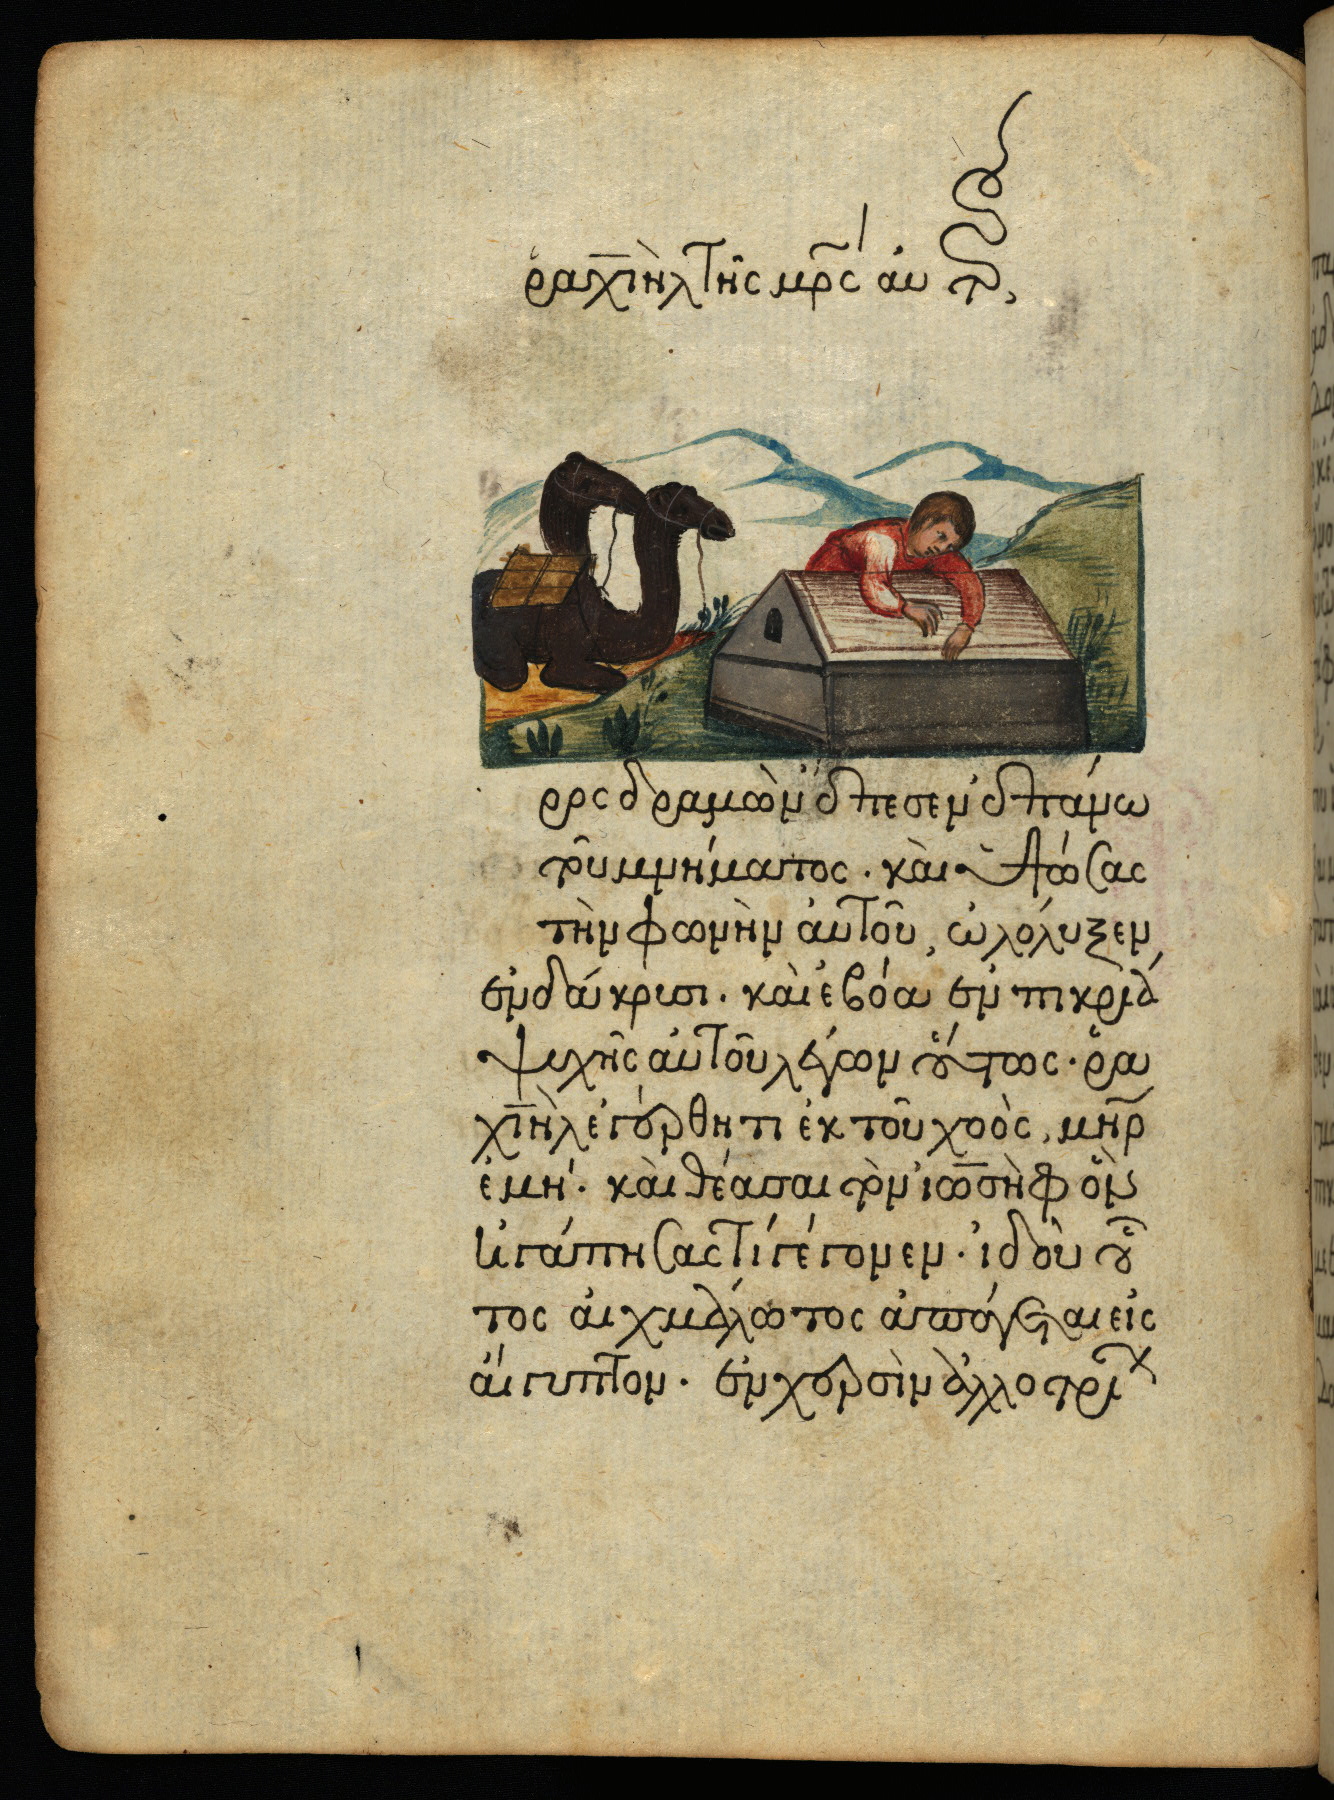 ῥαχιὴλ τῆς μρς αυτ,
ρρς δραμὼν ἔπεσεν ἐπάνω
τοῦ μνήματος · καὶ ὑψώσας
τὴν φωνὴν ἀυτοῦ, ὠλόλυξεν
ἐν δάκρυσι · καὶ ἐβόα ἐν πικρία
ψυχῆς ἀυτοῦ λέγων οὕτως · ῥα
χιὴλ ἐγέρθητι ἐκ τοῦ χοὸς, μηρ
ἐμή · καὶ θέασαι τὸν ἰωσὴφ ὃν
ἠγάπησας τί γέγονεν · ἰδοὺ οὗ
τος ἀιχμάλωτος ἀπάγεται εἰς
ἀίγυπτον · ἐν χερσὶν ἀλλοτρί